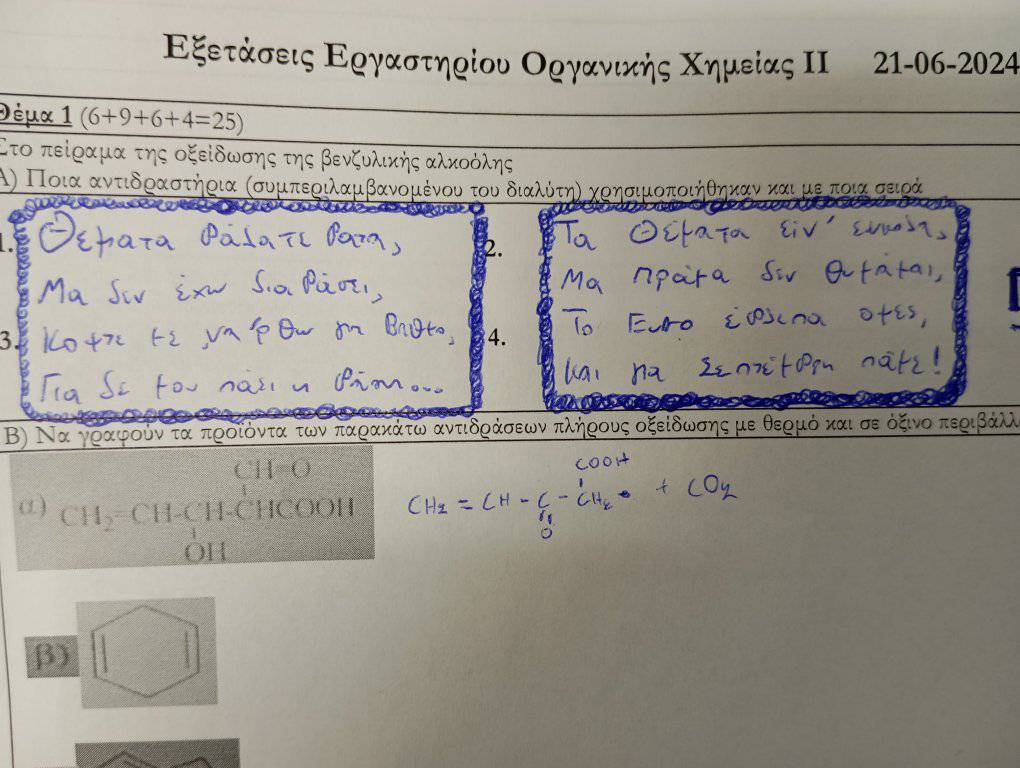 Εξετάσεις Εργαστηρίου Οργανικής Χημείας ΙΙ 21-06-2024
Θέμα 1 (6+9+6+4=25)
Στο πείραμα της οξείδωσης της βενζυλικής αλκοόλης
Α) Ποια αντιδραστήρια (συμπεριλαμβανομένου του διαλύτη) χρησιμοποιήθηκαν και με ποια σειρά
1. Θέματα βάλατε βατα,
Μα δεν έχω διαβάσει,
3. Κοψτε με να 'ρθω για
Για δε μου πάει η
2. Τα Θέματα είν' ευκολα,
Μα πράμα δεν θυμάμαι,
4. Το έβλεπα οψες,
και για Σεπτέμβρη πάμε!
Β) Να γραφούν τα προϊόντα των παρακάτω αντιδράσεων πλήρους οξείδωσης με θερμό και σε όξινο
CH=O
α) CH₂=CH-CH-CHCOOH
OH
COOH
CH₂ = CH - C - CH₂ + CO₂
O
β)